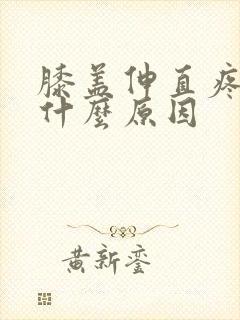 膝盖伸直疼
什麼原因
黄新銮